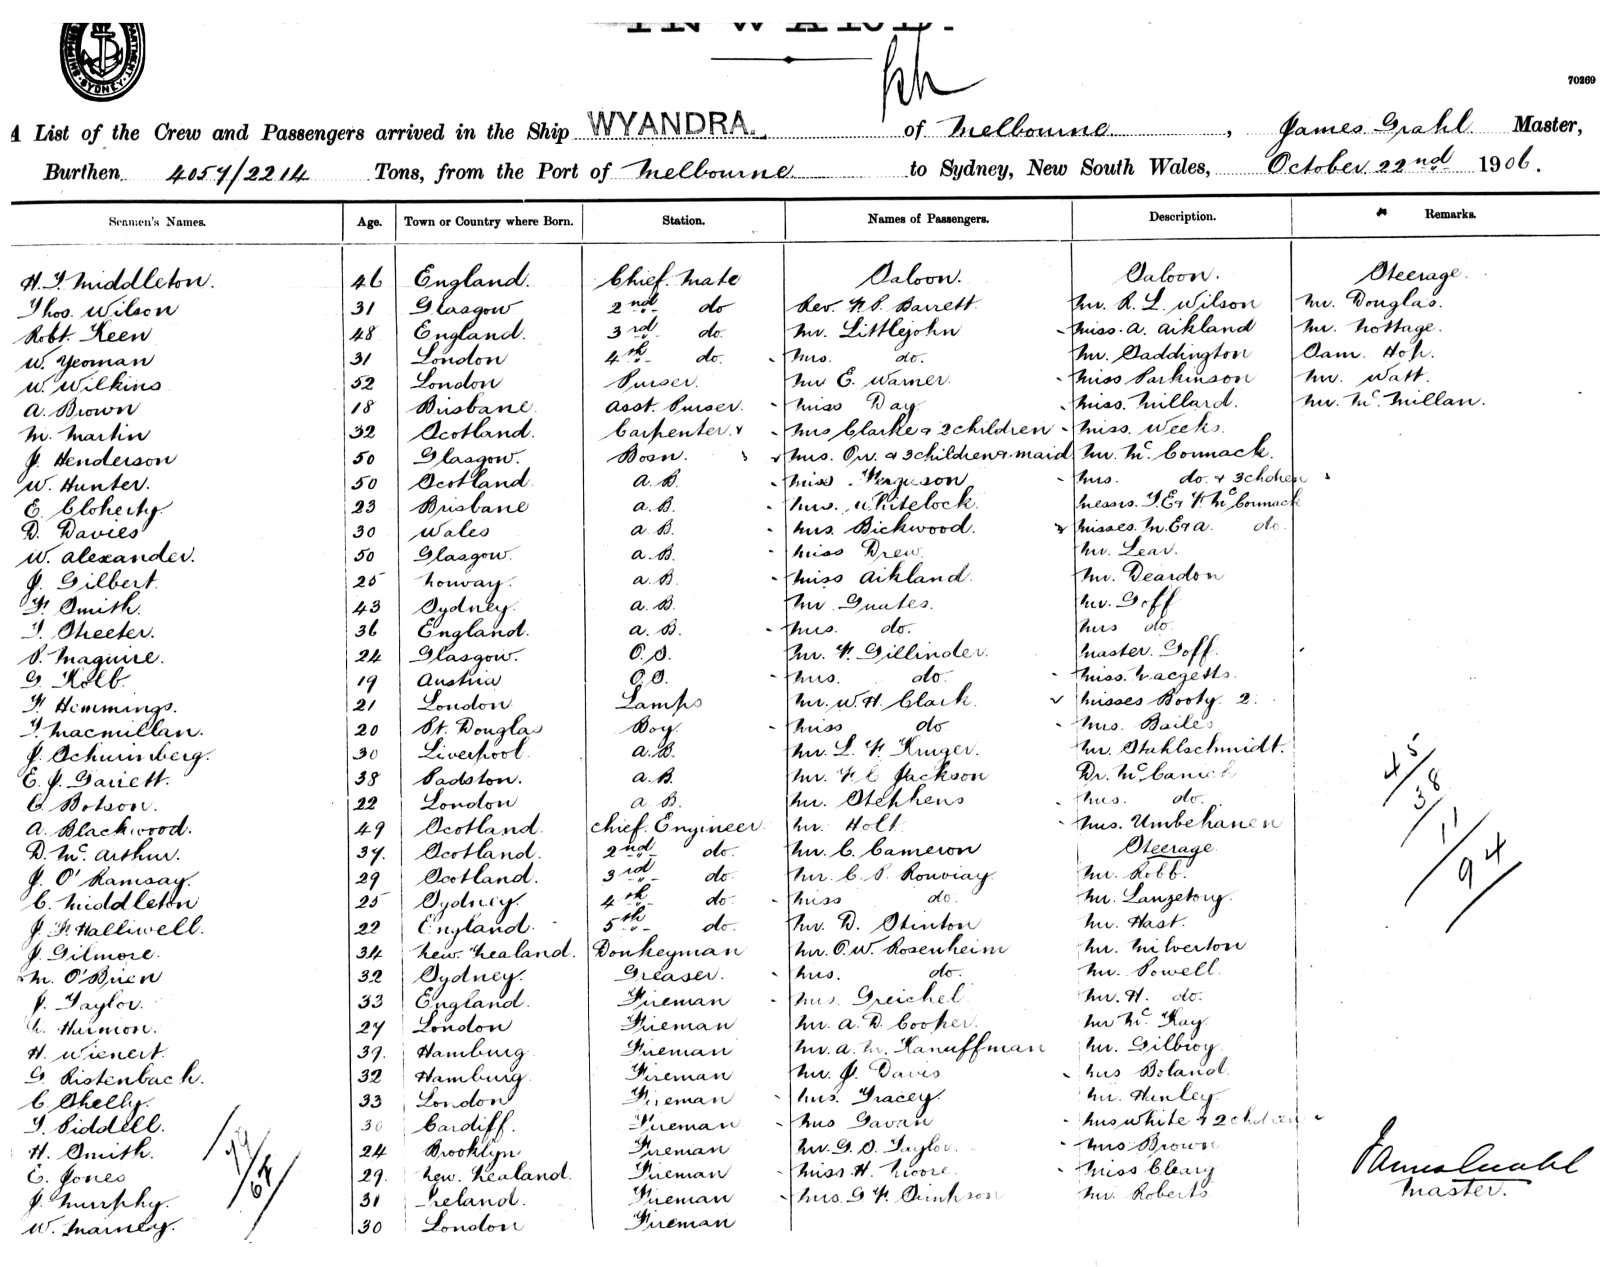 INWARD.
SHIPPING DEPARTMENT SYDNEY
70269
A List of the Crew and Passengers arrived in the Ship WYANDRA. of Melbourne, James Grahl Master,
Burthen 4057/2214 Tons, from the Port of Melbourne to Sydney, New South Wales, October 22nd 1906.
Seamen's Names. Age. Town or Country where Born. Station. Names of Passengers. Description. Remarks.
Saloon. Saloon. Steerage.
H. J. Middleton. 46 England. Chief Mate
Thos. Wilson 31 Glasgow 2nd do Rev. Barrett. Mr. R. L. Wilson Mr. Douglas.
Robt. Keen 48 England. 3rd do. Mr. Littlejohn Miss. A. Aikland Mr. Nottage.
W. Yeoman 31 London 4th do. Mrs. do. Mr. Saddington Sam. Hop.
W. Wilkins 52 London Purser. Mr E. Warner. Miss Parkinson Mr. Watt.
A. Brown 18 Brisbane. Asst. Purser. Miss Day. Miss. Millard. Mr. McMillan.
M. Martin 32 Scotland. Carpenter. Mrs Clarke & 2 children Miss. Weeks.
J. Henderson 50 Glasgow. Bosn. Mrs. Orr. & 3 children & maid Mr. McCormack.
W. Hunter. 50 Scotland. A. B. Miss Ferguson Mrs. do. & 3 chdren
E. Cloherty. 23 Brisbane A. B. Mrs. Whitelock. Messrs. McCormack
D. Davies 30 Wales A. B. Mrs. Bickwood. Misses. M. E & A. do.
W. Alexander. 50 Glasgow. A. B. Miss Drew. Mr. Lear.
J. Gilbert. 25 Norway. A. B. Miss Aikland. Mr. Deardon
F. Smith. 43 Sydney. A. B. Mr Guates. Mr. Goff
T. Sheeter. 36 England. A. B. Mrs. do. Mrs do
P. Maguire. 24 Glasgow. O.S. Mr. F. Gillinder. Master. Goff.
G. Kolb. 19 Austria O.S. Mrs. do. Miss.
F. Hemmings. 21 London Lamps Mr. W. H. Clark. Misses Booty. 2.
T. Macmillan. 20 Pt. Douglas Boy. Miss do Mrs. Bailes
J. 30 Liverpool. A. B. Mr. L. F. Kruger. Mr. Stahlschmidt.
E. J. Garrett. 38 Padston. A. B. Mr. Jackson Dr.
C. Botson. 22 London A. B. Mr. Stephens Mrs. do.
A. Blackwood. 49 Scotland. Chief. Engineer. Mr. Holt. Mrs. Umbehauen
D. McArthur. 37. Scotland. 2nd do. Mr. C. Cameron Steerage.
J. O'Ramsay. 29 Scotland. 3rd do. Mr. C. P. Rouvray. Mr. Robb.
C. Middleton 25 Sydney. 4th do. Miss do. Mr.
J. F. Halliwell. 22 England. 5th do. Mr. D. Stinton Mr. Hast.
J. Gilmore. 34 New. Zealand. Donkeyman Mr. O. W. Rosenheim Mr. Milverton
M. O'Brien 32 Sydney. Greaser. Mrs. do. Mr. Powell.
J. Taylor. 33 England. Fireman Mrs. Greichel Mr. H. do.
Harmon. 27 London Fireman Mr. A. D. Cooper. Mr McKay.
H. Wienert. 39. Hamburg. Fireman Mr. A. M. Kanuffman Mr. Gilbroy
G. Ristenbach. 32 Hamburg. Fireman Mr. J. Davis Mrs Boland
C. Shelly. 33 London Fireman Mrs. Tracey. Mr. Hunley.
T. Siddell. 30 Cardiff. Fireman Mrs Gavan Mrs White & 2 children
H. Smith. 24 Brooklyn Fireman Mr. G. S. Taylor. Mrs Brown
E. Jones 29. New. Zealand. Fireman Miss. H. Moore. Miss Cleary
J. Murphy. 31 Ireland. Fireman Mrs. G F. Simpson Mr. Roberts
W. Marney. 30 London Fireman
45/38/11/94
James Grahl
Master.